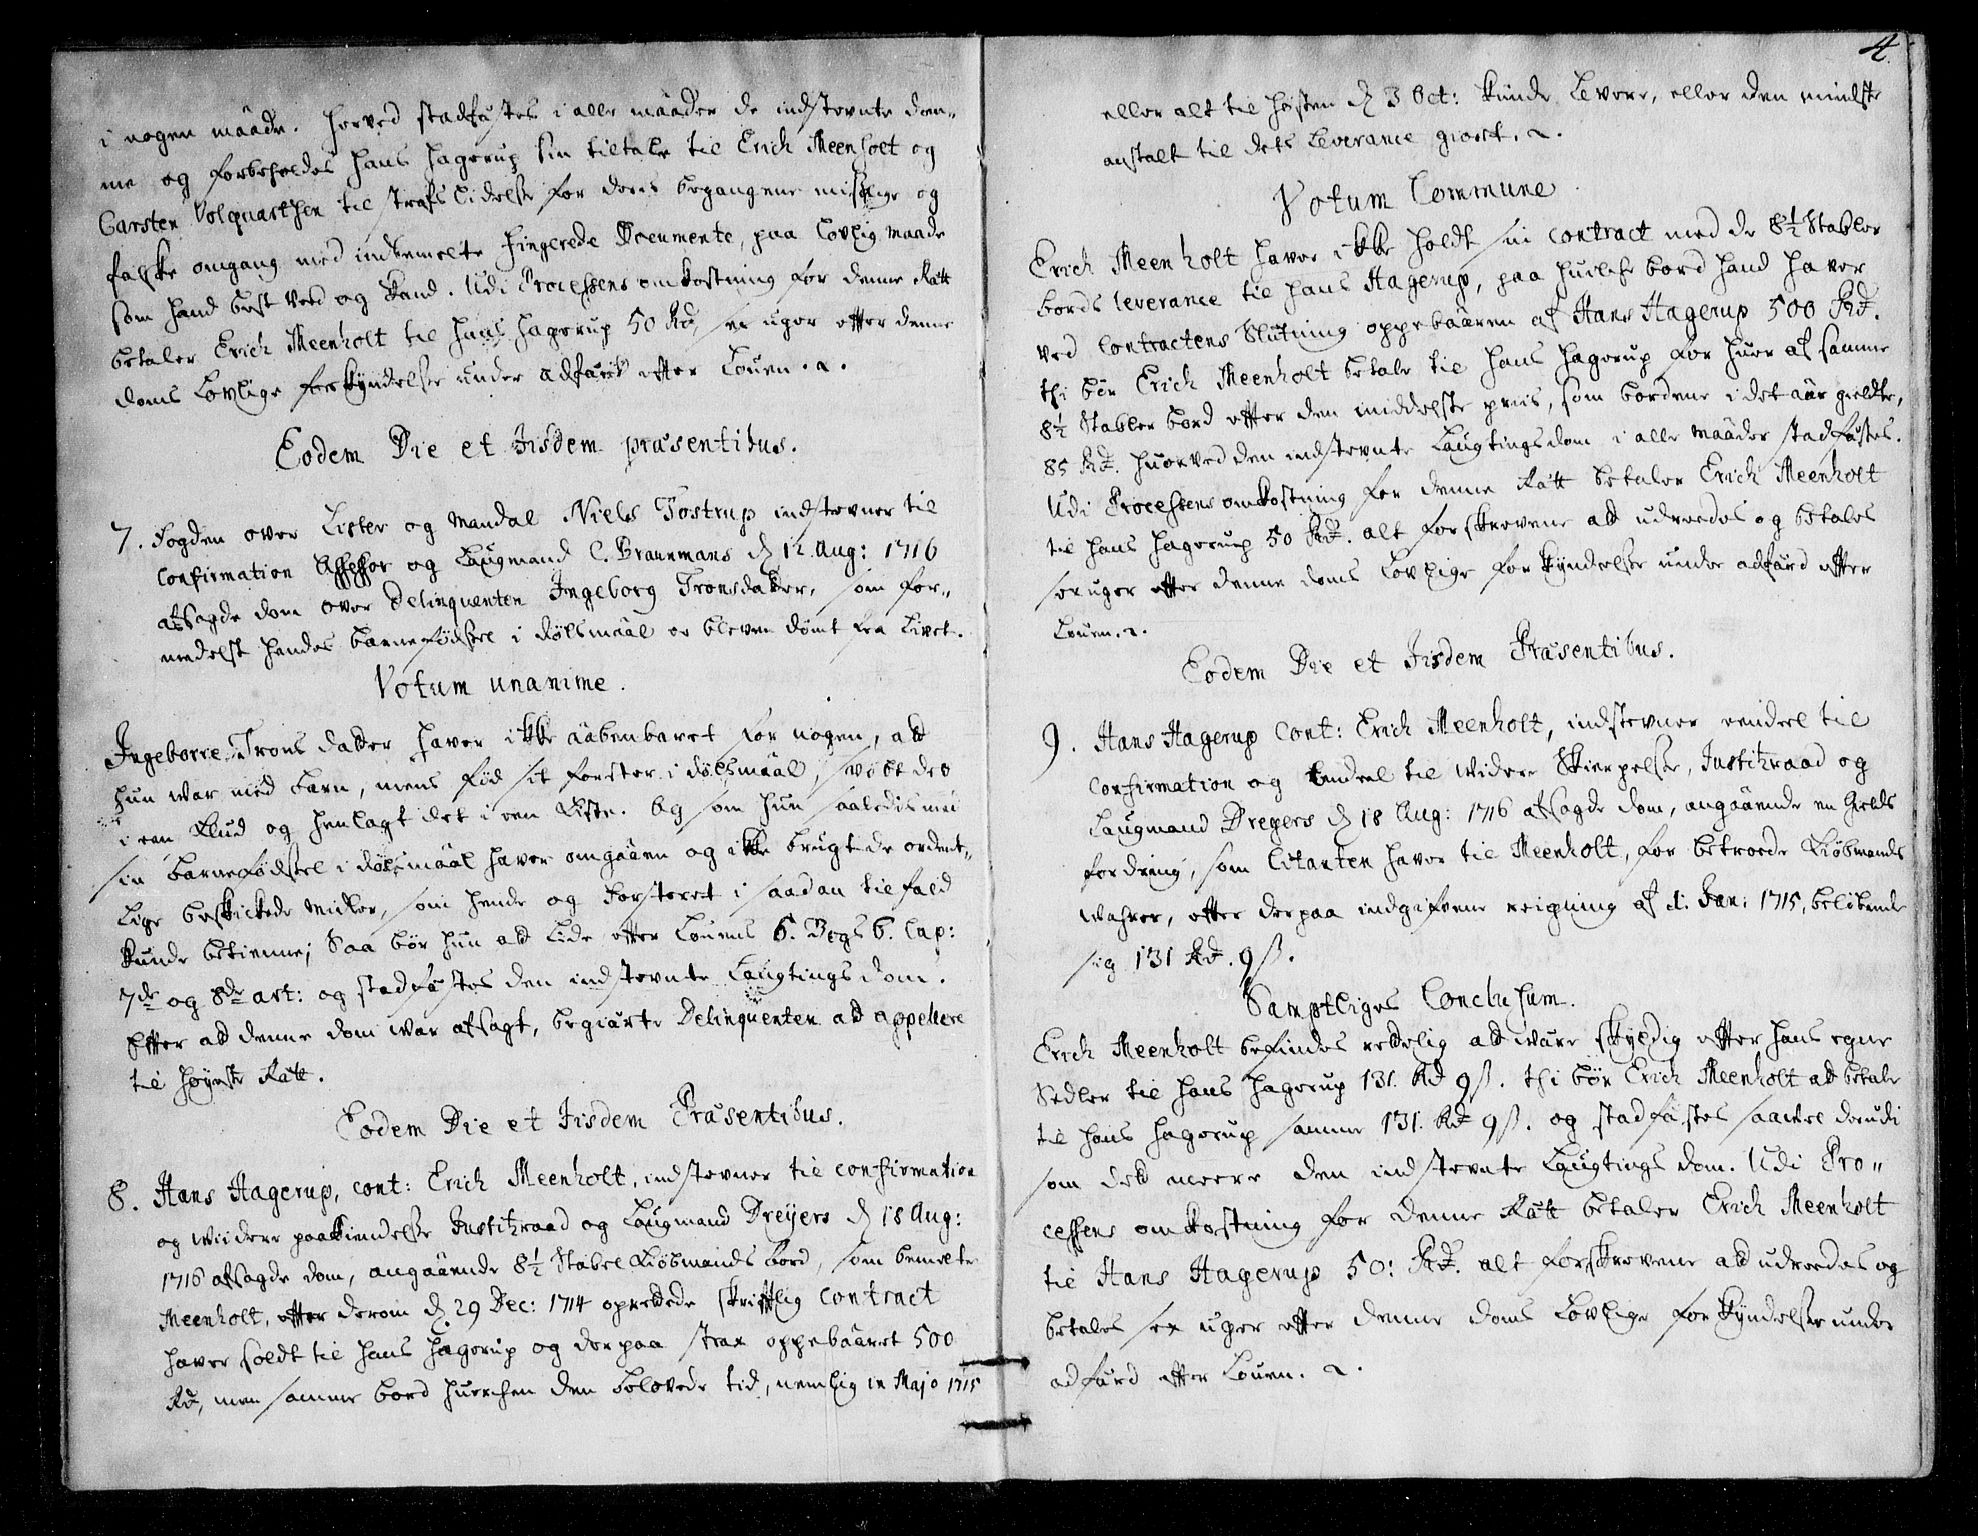 i nogen maade. Herved stadfæstes i alle maader de indstevnte dom„
me og forbeholdes Hans Hagerup sin tiltale til Erich Meenholt og
Carsten Volquarthsen til strafs lidelse for deres begangene mislige og
falske omgang med indbemelte fingerede Documente, paa Lovlig maade
som hand best veed og kand. Udi Processens omkostning for denne Rätt
betaler Erich Meenholt til Hans Hagerup 50 Rd, sex uger efter denne
doms Lovlige forkÿndelse under adfærd efter Louen.
Eodem Die et Iisdem præsentibus.
7. Fogden over Lister og Mandal Niels Tostrup indstevner til
Confirmation Assessor og Laugmand C. Braunmans d. 12. Aug: 1716
afsagde dom over Delinquenten Ingeborg Tronsdatter, som for„
medelst hendes barnefødsel i dølsmaal er bleven dømt fra Livet.
Votum unanime.
Ingeborre Tronsdatter haver ikke aabenbaret for nogen, att
hun war med barn, mens fød sit foster i dølsmaal, svøbt det
i een Klud og henlagt det i een Kiste. Og som hun saaledis med
sin barnefødsel i dølsmaal haver omgaaen og ikke brugt de ordent„
lige beskickede midler, som hende og Fosteret i saadan tilfald
kunde betienne; Saa bør hun att lide efter Louens 6. Bogs 6. Cap:
7de og 8de art: og stadfæstes den indstevnte Laugtings dom.
Efter att denne dom war afsagt, begiærte Delinquenten att appellere
til Høyeste Rätt.
Eodem Die et Iisdem Præsentibus.
8. Hans Hagerup, cont: Erich Meenholt, indstevner til confirmation
og wiidere paakiendelse Justitzraad og Laugmand Dreÿers d. 18 Aug:
1716 afsagde dom, angaaende 8½ Stabel Kiøbmands bord, som bemelte
Meenholt, efter derom d. 29 Dec: 1714 oprettede skriftlig Contract
haver soldt til Hans Hagerup og derpaa strax oppebaaret 500
Rd, men samme bord huerchen den belovede tid, nemlig in Majo 1715
4.
eller alt til høsten d. 3 Oct: kunde levere, eller den mindste
anstalt til dets Leverance giort.
Votum Commune.
Erich Meenholt haver ikke holdt sin Contract med de 8½ Stabler
bords leverance til Hans Hagerup, paa huilche bord hand haver
ved Contractens Slutning oppebaaren af Hans Hagerup 500 Rd.
thi bør Erich Meenholt betale til Hans Hagerup for huer af samme
8½ Stabler bord efter den middelste priis, som bordene i det aar gieldte,
85 Rd. huorved den indstevnte Laugtings dom i alle maader stadfæstes.
Udi Processens omkostning for denne Rätt betaler Erich Meenholt
til Hans Hagerup 50 Rd. alt forskrevene att udreedes og betales
sex uger efter denne doms Lovlige forkÿndelse under adfærd efter
Louen.
Eodem Die et Iisdem Præsentibus.
9. Hans Hagerup Cont: Erich Meenholt, indstevner eendeel til
Confirmation og eendeel til widere Skierpelse, Justitzraad og
Laugmand Dreyers d. 18 Aug: 1716 afsagde dom, angaaende en Gields
fordring, som Citanten haver til Meenholt, for betroede Kiøbmands
wahrer, efter derpaa indgifvene reigning af d. 1. Jan: 1715, beløbende
sig 131 Rd. 9 ß.
Samptliges Conclusum.
Erich Meenholt befindes rettelig att være skyldig efter hans egne
Sedler til Hans Hagerup 131. Rd 9 ß. thi bør Erich Meenholt att betale
til Hans Hagerup samme 131. Rd 9 ß. og stadfæstes saavel derudi
som dett meere den indstevnte Laugtings dom. Udi Pro„
cessens omkostning for denne Rätt betaler Erich Meenholt
til Hans Hagerup 50: Rd. alt forskrevene att udreedes og
betales sex uger efter denne doms Lovlige forkÿndelse under
adfærd efter Louen.